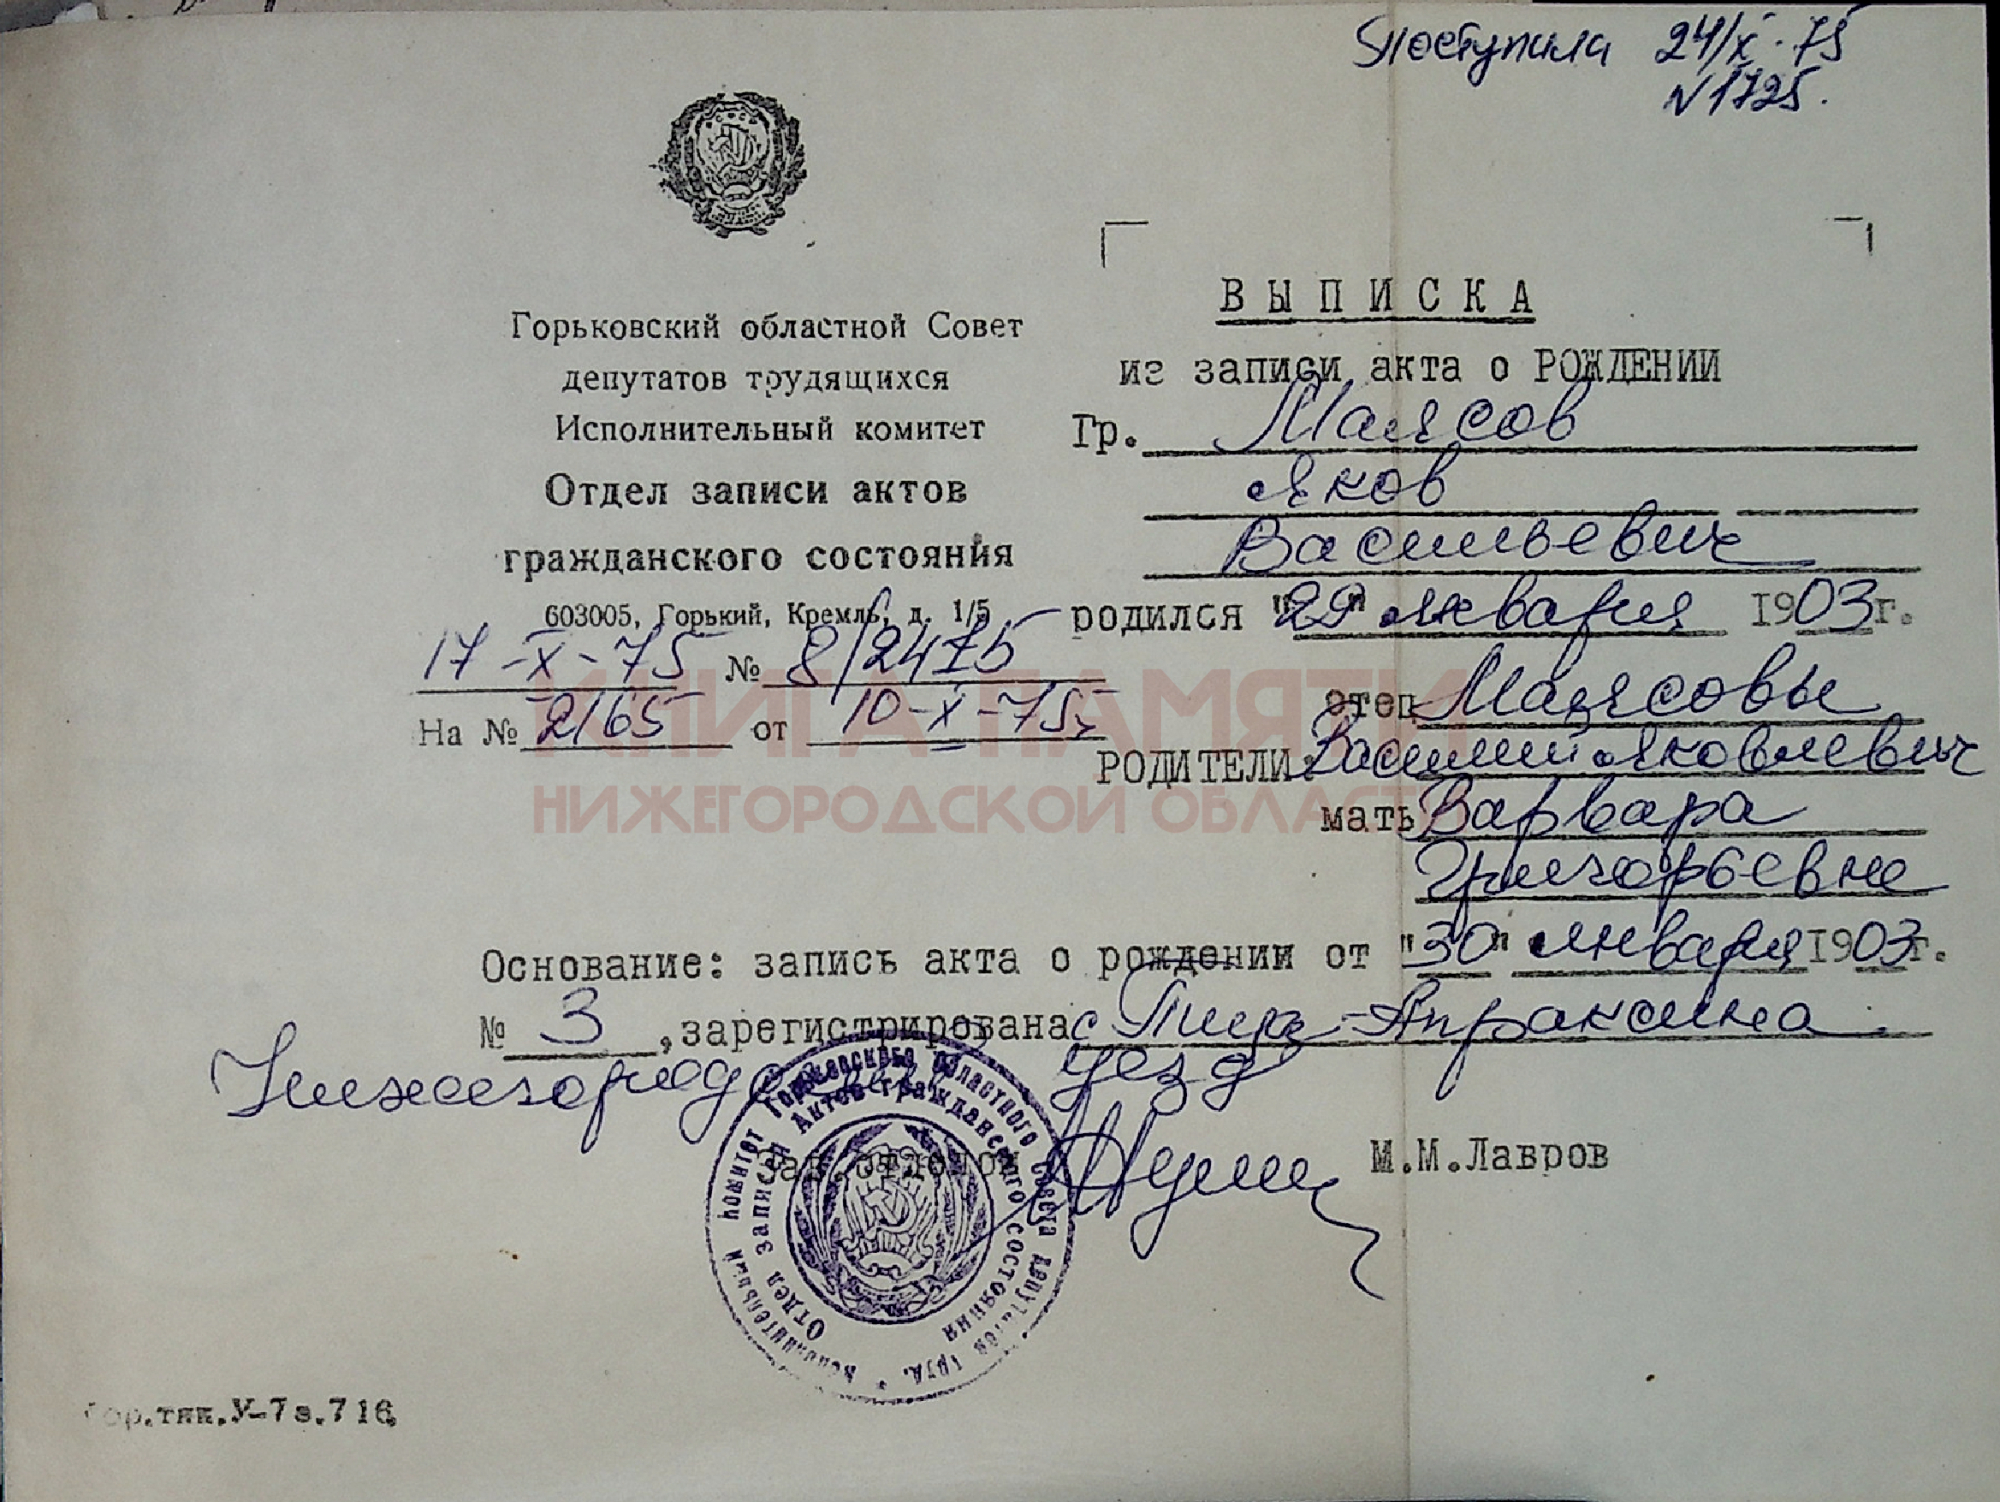 Поступила 24/X-75
№1725.
Горьковский областной Совет
депутатов трудящихся
Исполнительный комитет
Отдел записи актов
гражданского состояния
603005, Горький, Кремль, д. 1/5
17-X-75 № 8/2475
На № 2165 от 10-X-75г
ВЫПИСКА
из записи акта о РОЖДЕНИИ
Гр. Маясов
Яков
Васильевич
родился "29" января 1903г.
отец Маясовы
РОДИТЕЛИ: Василий Яковлевич
мать Варвара
Григорьевна
КНИГА ПАМЯТИ
НИЖЕГОРОДСКОЙ ОБЛАСТИ
Основание: запись акта о рождении от "30" января 1903г.
№ 3, зарегистрирована с Пица-Апраксина
Нижегородский уезд
Зав.отделом М.М.Лавров
Исполнительный комитет Горьковского областного Совета депутатов труд. *
Отдел записей Актов гражданского состояния
Гор.тип.У-7з.716.